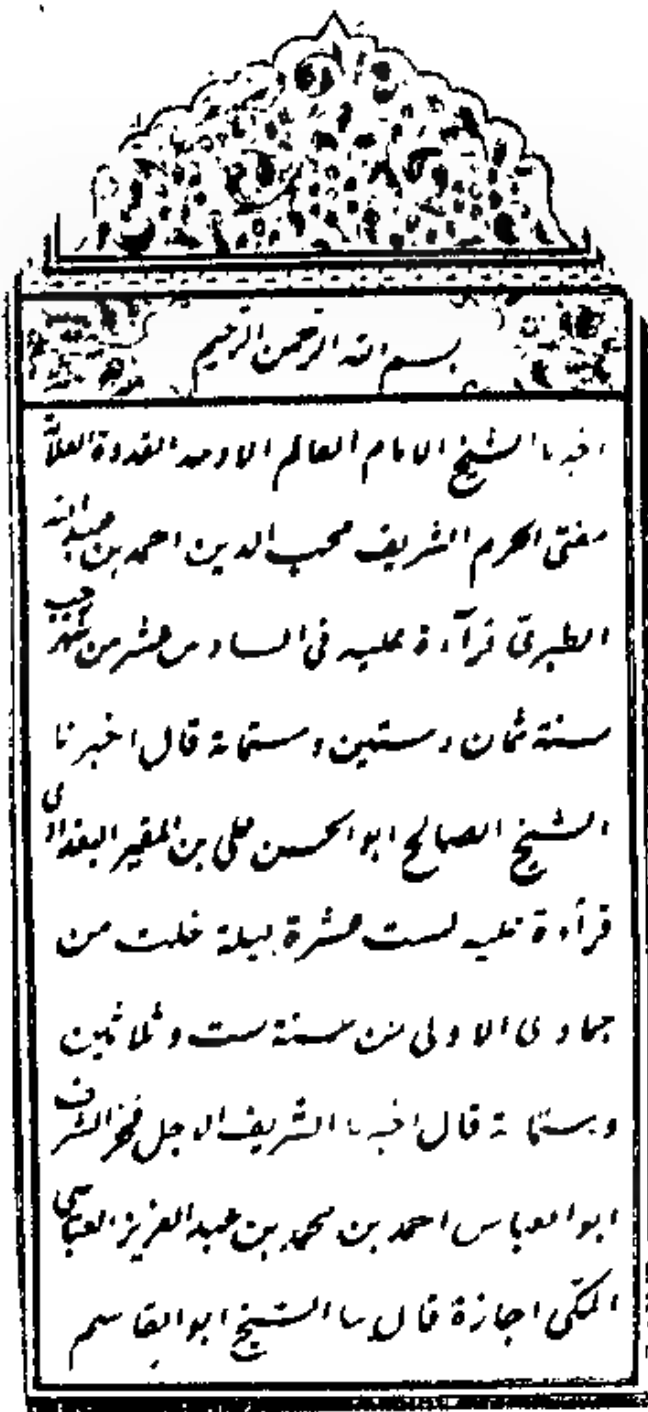 بسم الله الرحمن الرحيم
اخبرنا الشيخ الامام العالم الاوحد القدوة العلّا
مفتى الحرم الشريف محب الدين احمد بن عبد الله
الطبرىّ قرآءة عليه فى السادس عشر من
سنة ثمان وستين وستمائة قال اخبرنا
الشيخ الصالح ابو الحسن على بن المقير البغدادى
قرأءة عليه لست عشرة ليلة خلت من
جمادى الاولى من سنة ست وثلاثين
وستمائة قال اخبرنا الشريف الاجل فخر الشرف
ابو العباس احمد بن محمد بن عبد العزيز العباسى
المكّى اجازة قال الشيخ ابو القاسم